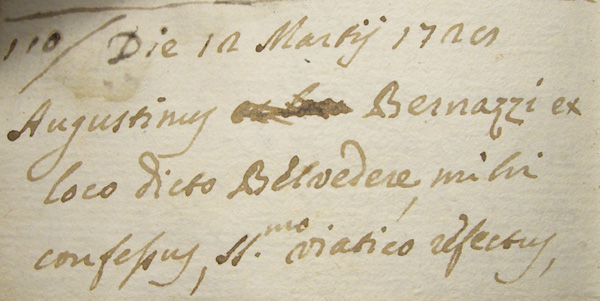 110/ Die 12 Martij 1729
Augustinus Bernazzi ex
loco dicto Belvedere, mihi
confessus, SS.mo viatico refectus,